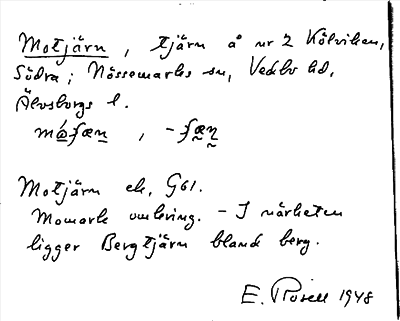 Motjärn, tjärn å nr 2 Kölviken,
Södra; Nössemarks sn, Vedbo hd,
Älvsborgs l.
Motjärn ek, G61.
Momark omkring. - I närheten
ligger Bergtjärn bland berg.
E. Rosell 1948